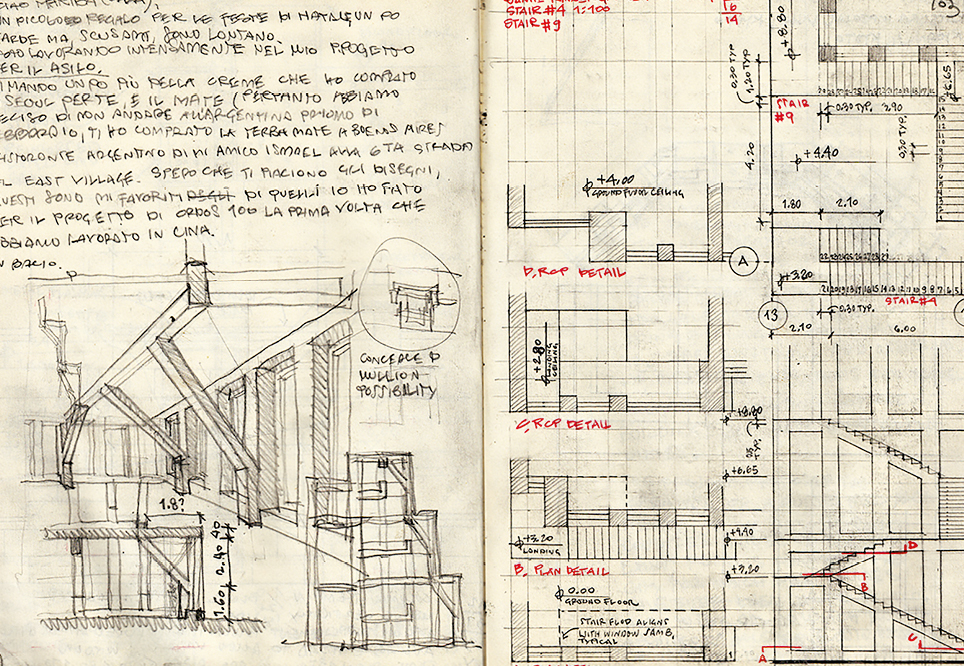 UN PICCOLO REGALO PER LE FESTE DI NATALE, UN PO
TARDE MA SCUSAMI, SONO LONTANO.
LAVORANDO INTENSAMENTE NEL MIO PROGETTO
PER IL ASILO.
MANDO UN PO PIÙ DELLA CREME CHE HO COMPRATO
SEOUL PERTE, E IL MATE (PERTANTO ABBIAMO
DECISO DI NON ANDARE ALL'ARGENTINA PRIMO DI
FEBBRARIO, TI HO COMPRATO LA YERBA MATE A BUENOS AIRES
RISTORANTE ARGENTINO DI MI AMICO ISMAEL ALLA 6TA STRADA
EAST VILLAGE. SPERO CHE TI PIACIONO GLI DISEGNI,
QUESTI SONO MI FAVORITI DEGLI DI QUELLI IO HO FATO
PER IL PROGETTO DI ORDOS 100 LA PRIMA VOLTA CHE
ABBIAMO LAVORATO IN CINA.
UN BACIO.
MULLION
POSSIBILITY
1.8?
.40
2.40
1.60
STAIR #4 1:100
STAIR #9
16
14
+8.80
0.30 TYP.
1.20 TYP.
4.20
+6.65
STAIR
#9
0.30 TYP.
2.90
0.30 TYP.
+4.40
1.80
2.10
+4.00
GROUND FLOOR CEILING
D, RCP DETAIL
A
+3.20
STAIR #4
13
0.30 TYP.
2.10
6.00
+2.80
LANDING
CEILING
C, RCP DETAIL
+8.80
+6.65
+3.20
LANDING
+4.40
B, PLAN DETAIL
+3.20
0.00
GROUND FLOOR
STAIR FLOOR ALIGNS
WITH WINDOW JAMB,
TYPICAL
D
B
C
A